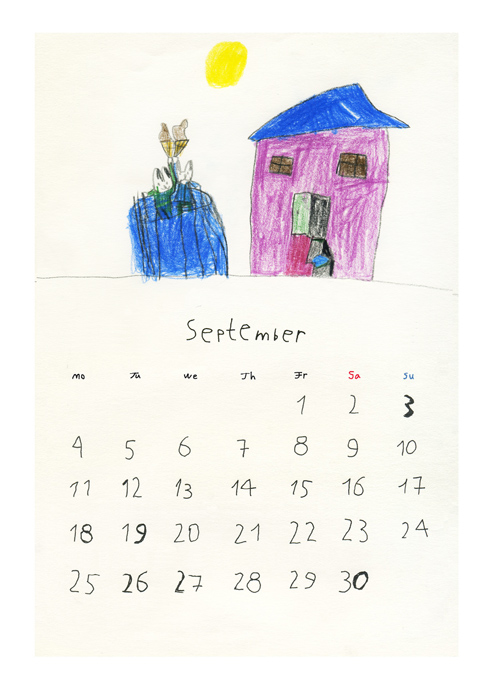 September
Mo Tu We Th Fr Sa Su
1 2 3
4 5 6 7 8 9 10
11 12 13 14 15 16 17
18 19 20 21 22 23 24
25 26 27 28 29 30